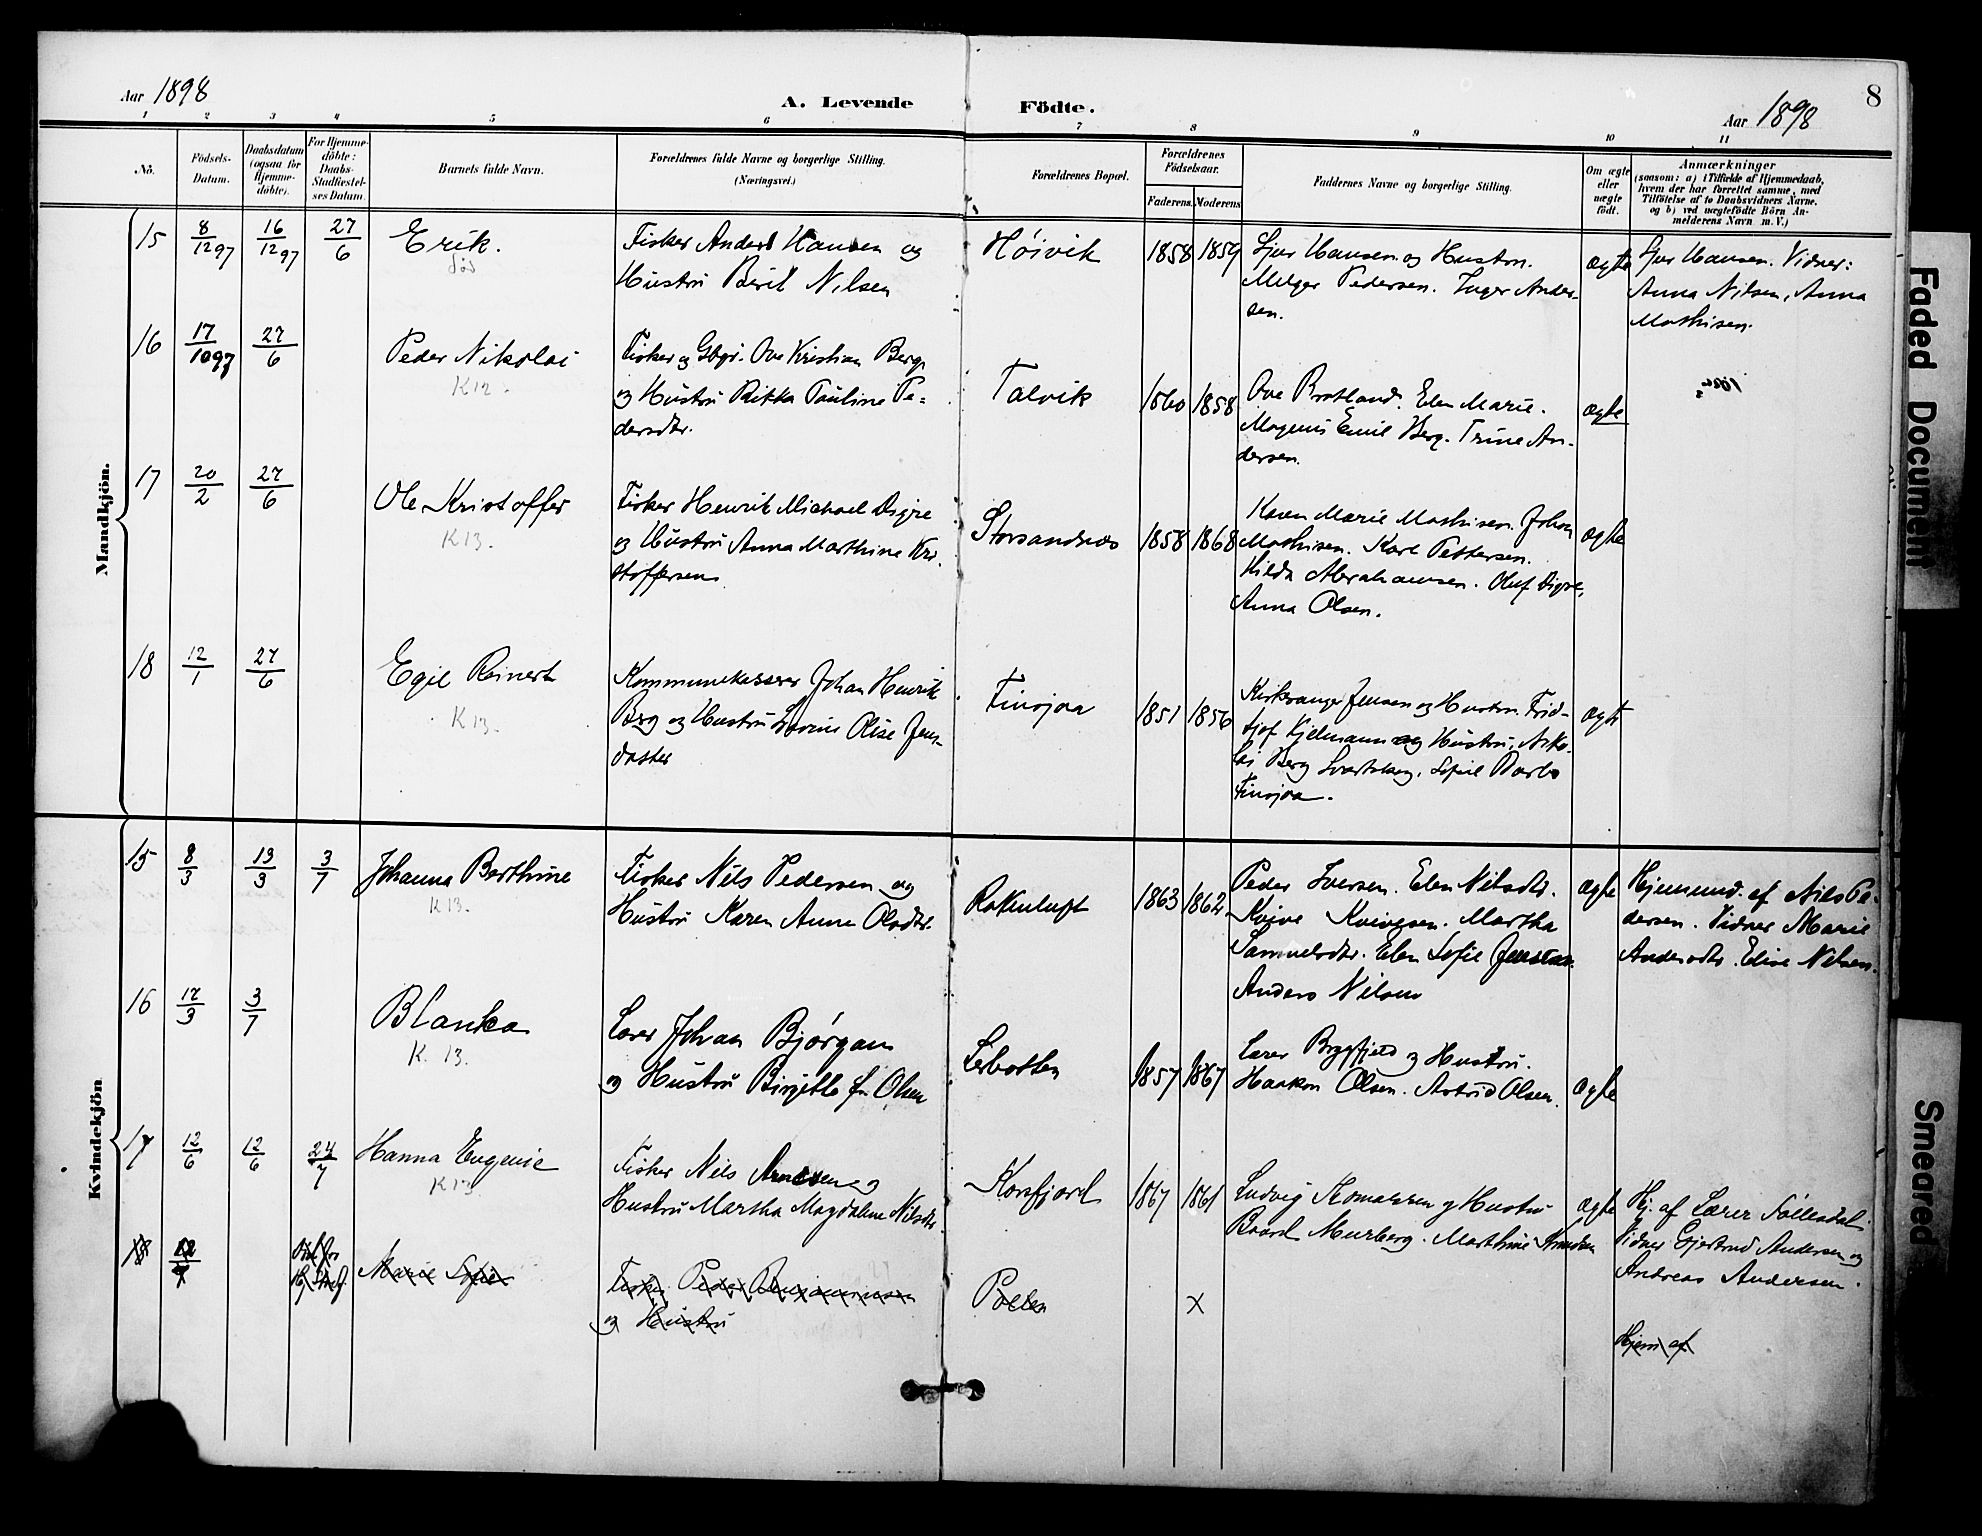 Aar 1898
A. Levende Födte.
Aar 1898
8
1 2 3 4 5 6 7 8 9 10 11
No.
Födsels-Datum.
Daabsdatum (ogsaa for Hjemme-döbte).
For Hjemme-döbte: Daabs-Stadfæstel-ses Datum.
Barnets fulde Navn.
Forældrenes fulde Navne og borgerlige Stilling.
(Næringsvei.)
Forældrenes Bopæl.
Forældrenes Födselsaar.
Faderens. Moderens
Faddernes Navne og borgerlige Stilling.
Om ægte eller uægte födt.
Anmærkninger
(saasom: a) i Tilfælde af Hjemmedaab,
hvem der har forrettet samme, med
Tilföielse af to Daabsvidners Navne.
og b) ved uægtefödte Börn An-
melderens Navn m. V.)
Mandkjön.
15 8/12 97 16/12 97 27/6 Erik.
Död
Fisker Anders Hansen og
Hustru Berit Nilsen
Høivik 1858 1859
Sjur Hansen og Hustru.
Melger Pedersen. Inger Ander-
sen.
ægte
Sjur Hansen. Vidner:
Anna Nilsen, Anna
Mathisen.
16 17/10 97 27/6 Peder Nikolai
K12.
Fisker og Gbgr. Ove Kristian Berg
og Hustru Rikka Pauline Pe-
dersdtr.
Talvik 1860 1858
Ove Bratland. Elen Marie.
Magnus Emil Berg. Trine An-
dersen.
ægte
17 20/2 27/6 Ole Kristoffer
K13.
Fisker Henrik Michael Digre
og Hustru Anna Marthine Kri-
stoffersen
Storsandnes 1858 1868
Karen Marie Mathisen. Johan
Mathisen. Karl Pettersen.
Hilda Abrahamsen. Oluf Digre,
Anna Olsen.
ægte
18 12/1 27/6 Egil Reinert
K13.
Kommunekasserer Johan Henrik
Berg og Hustru Lovine Olise Jens-
datter
Finsjoa 1851 1856
Kirkesanger Jensen og Hustru. Frid-
tjof Kjelmann og Hustru, Niko-
lai Berg Svartskog, Sofie Barbo
Finsjoa.
ægte
Kvindekjön
15 8/3 13/3 3/7 Johanna Berthine
K13.
Fisker Nils Pedersen og
Hustru Karen Anna Olsdtr.
Rafnluft 1863 1862
Peder Iversen. Elen Nilsdtr.
Kvive Kvivesen. Martha
Samuelsdtr. Elen Sofie
Anders Nilsen
ægte
Hjemmed. af Nils Pe-
dersen. Vidner Marie
Andersdtr. Elise Nilsen.
16 17/3 3/7 Blanka
K. 13.
Lærer Johan Bjørgan
og Hustru Birgitte f. Olsen
Lerbotten 1857 1867
Lærer Bryggfjeld og Hustru.
Haakon Olsen. Astrid Olsen.
ægte
17 12/6 12/6 24/7 Hanna Eugenie
K13
Fisker Nils Arnesen og
Hustru Martha Magdalene Nilsdtr.
Korsfjord 1867 1861
Ludvig Thomassen og Hustru
Baard Murberg. Marthine Amundsen
ægte
Hj. af Lærer Follesdal.
Vidner Gjertrud Andersen og
Andreas Andersen.
18 Marie Sofie
Fisker Peder Benjaminsen
og Hustru
Pollen
x
Hjem af
Faded Document
Smeared